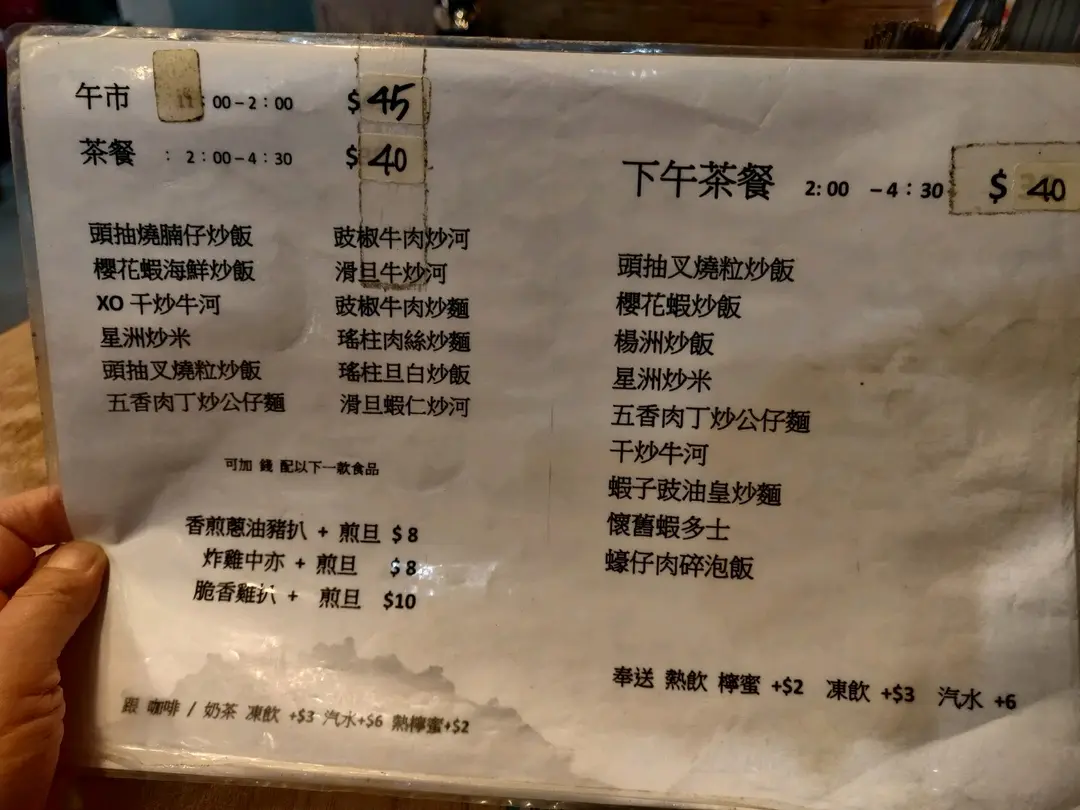 午市 11:00-2:00 $45
茶餐 : 2:00-4:30 $40
頭抽燒腩仔炒飯
櫻花蝦海鮮炒飯
XO 干炒牛河
星洲炒米
頭抽叉燒粒炒飯
五香肉丁炒公仔麵
豉椒牛肉炒河
滑旦牛炒河
豉椒牛肉炒麵
瑤柱肉絲炒麵
瑤柱旦白炒飯
滑旦蝦仁炒河
可加 錢 配以下一款食品
香煎蔥油豬扒 + 煎旦 $8
炸雞中亦 + 煎旦 $8
脆香雞扒 + 煎旦 $10
跟 咖啡 / 奶茶 凍飲 +$3 汽水+$6 熱檸蜜+$2
下午茶餐 2:00 -4:30 $40
頭抽叉燒粒炒飯
櫻花蝦炒飯
楊洲炒飯
星洲炒米
五香肉丁炒公仔麵
干炒牛河
蝦子豉油皇炒麵
懷舊蝦多士
蠔仔肉碎泡飯
奉送 熱飲 檸蜜 +$2 凍飲 +$3 汽水 +6